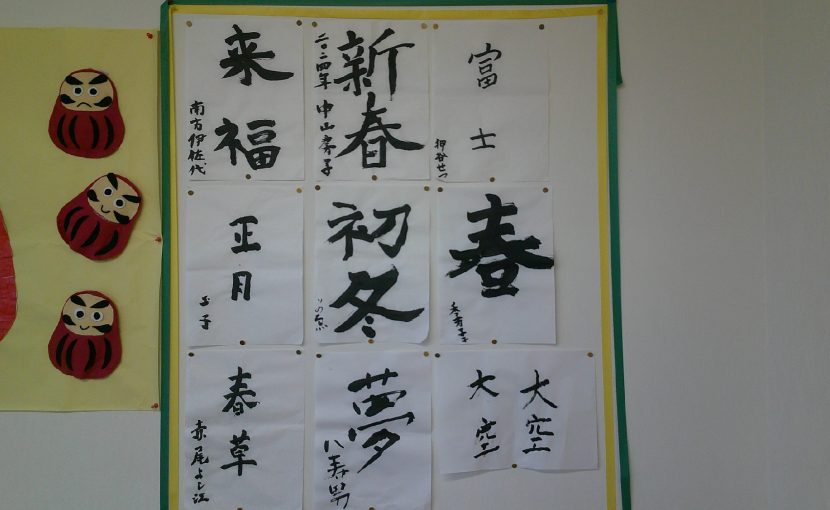 来福
南方伊佐代
新春
二〇二四年 中山房子
富士
押谷せつ
正月
玉子
初冬
春
春草
赤尾よし江
夢
八寿男
大空
大空